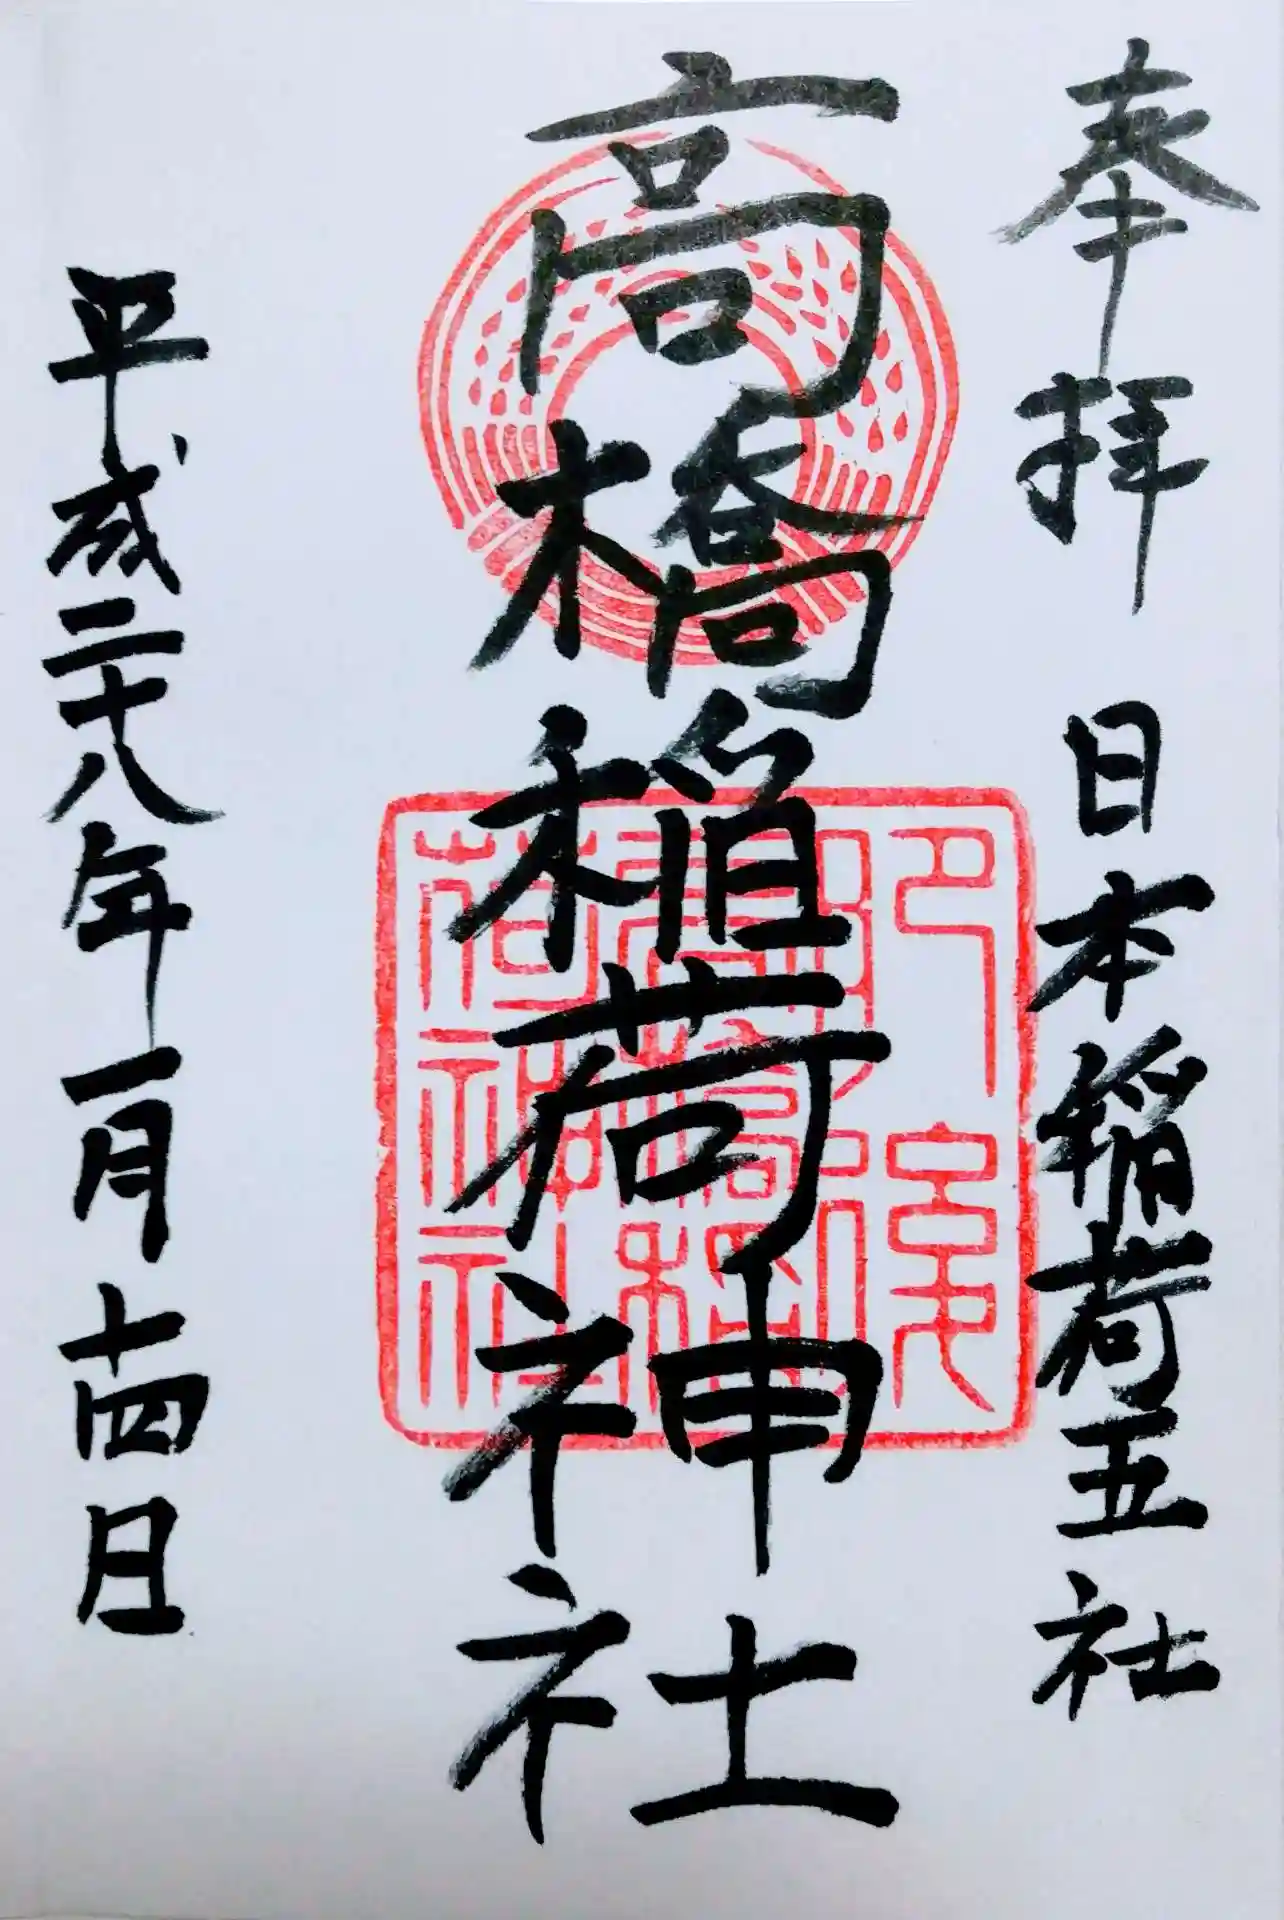 奉拝 日本稲荷五社
高橋稲荷神社
平成二十八年一月十四日